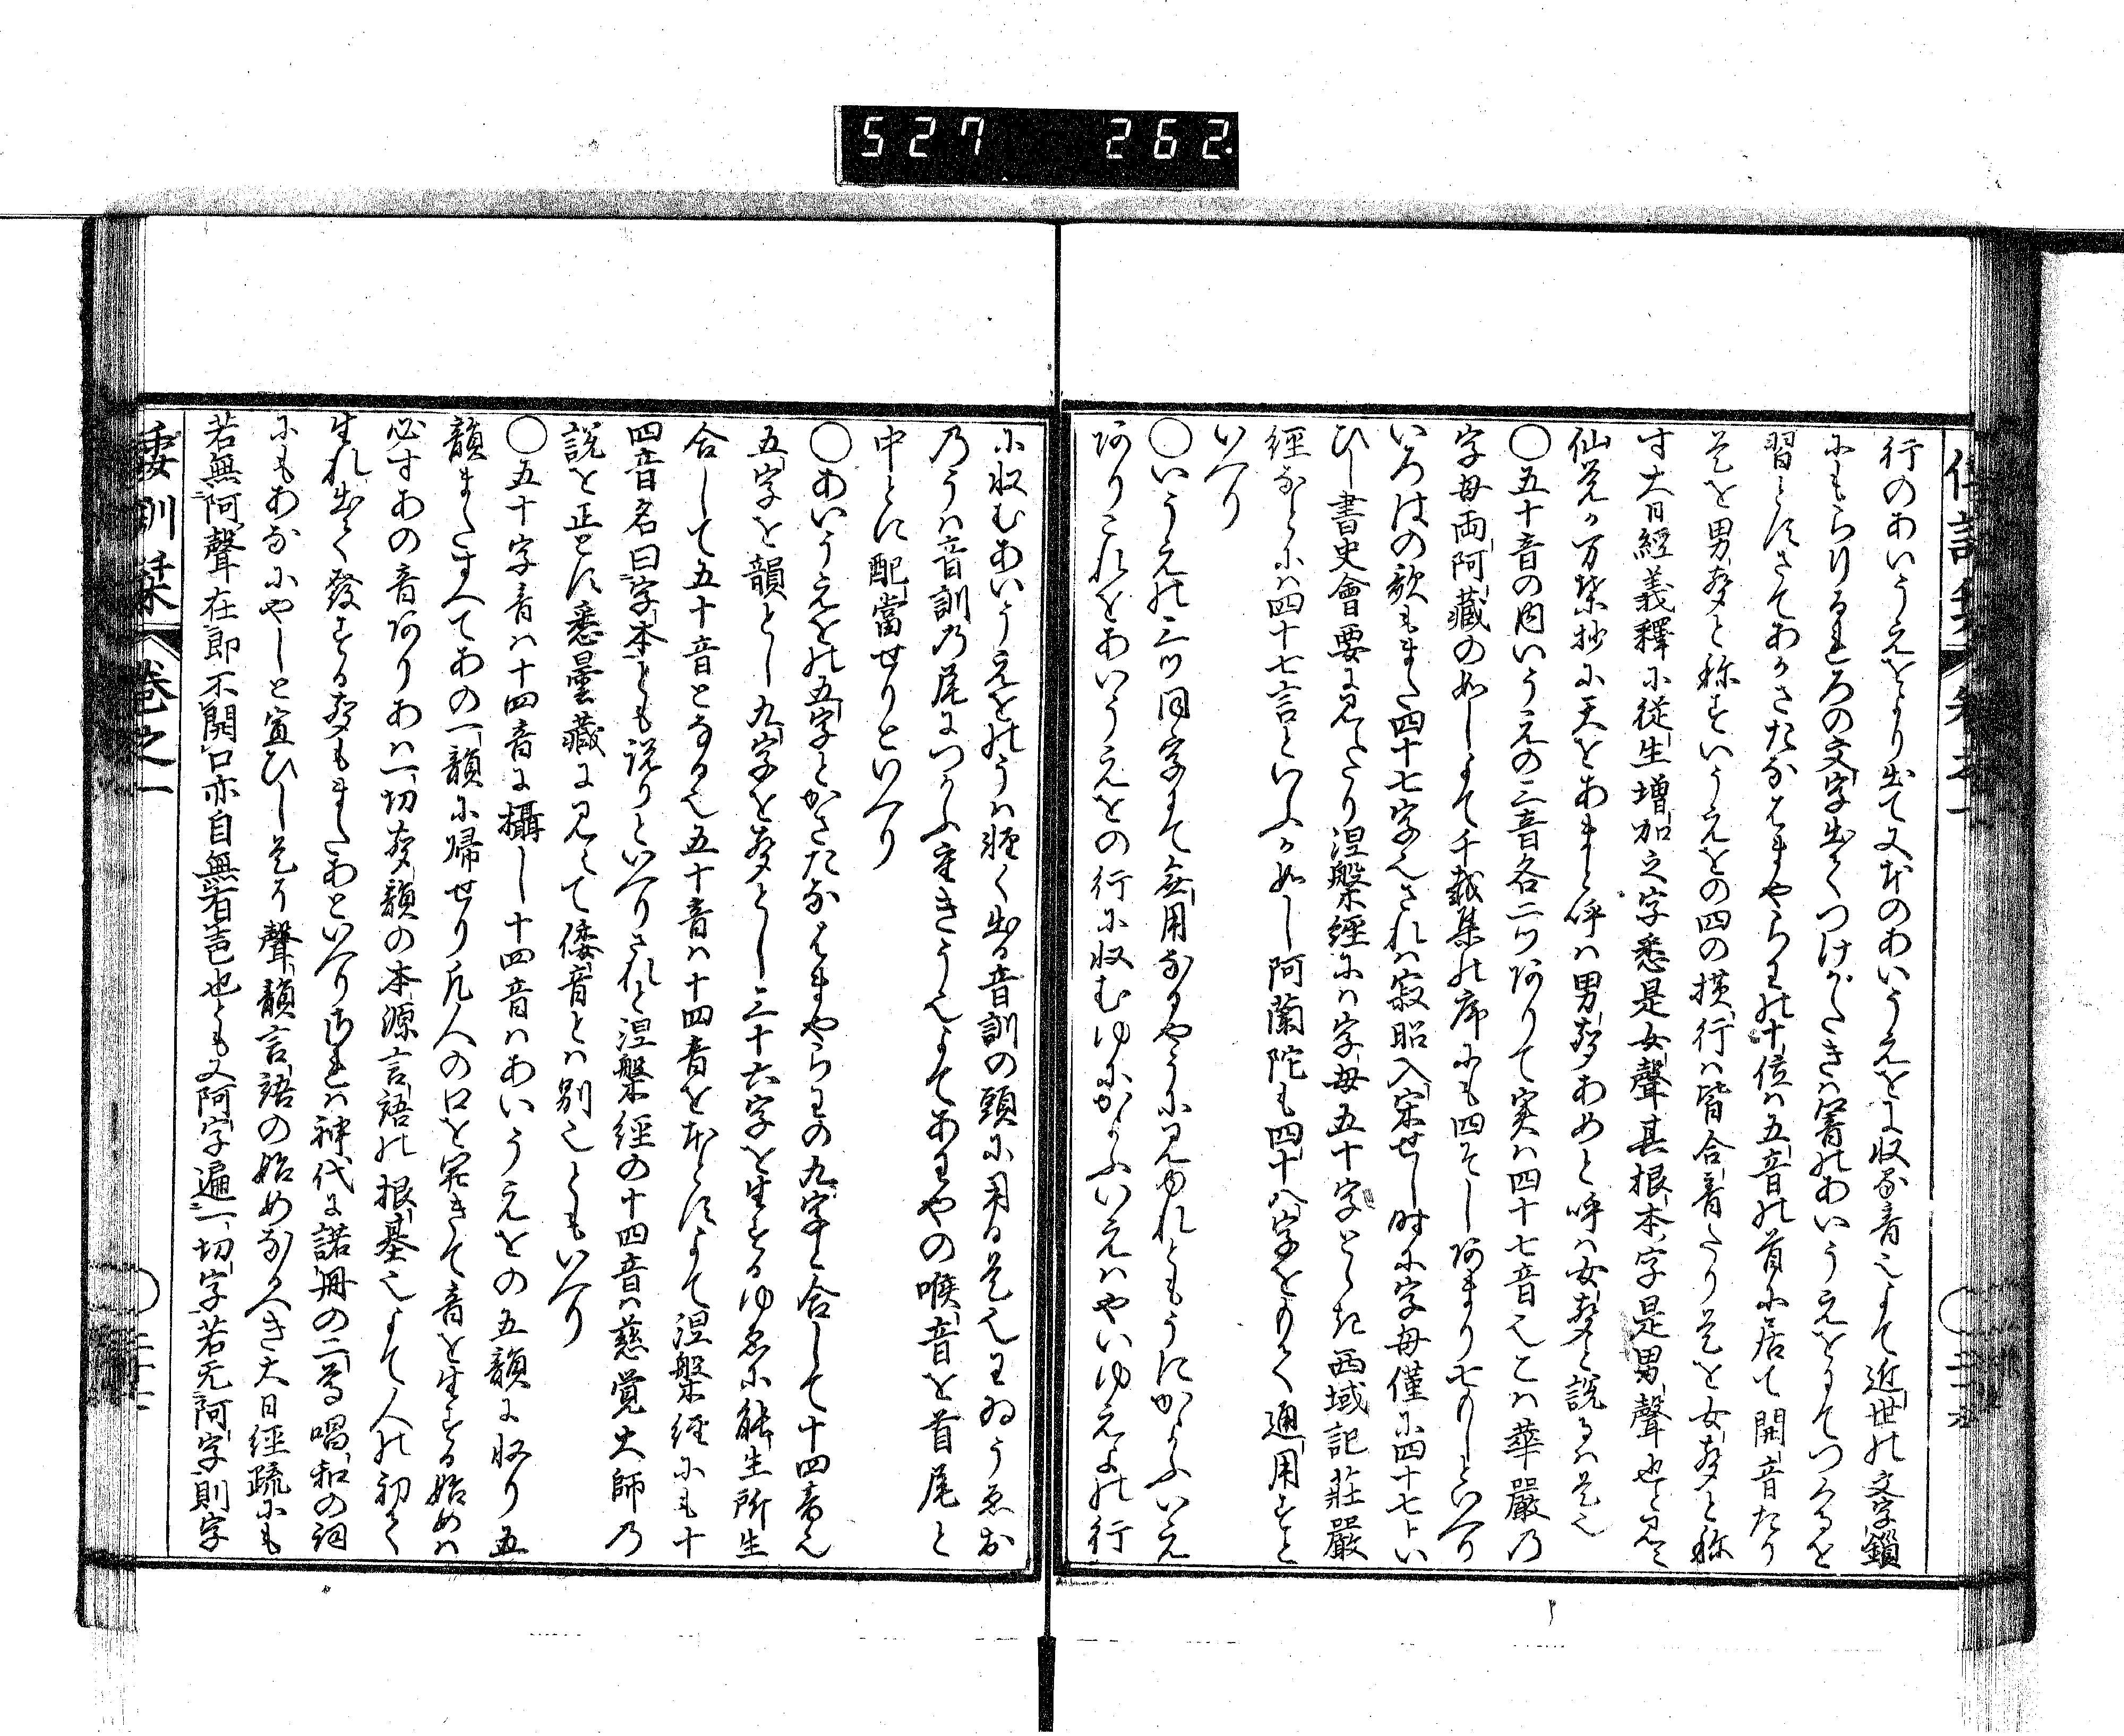 527 262
行のあいうえをより出て又本のあいうえをに収る音也よて近世の文字鎖
にもらりるれろの文字出てつけがたきは客のあいうえをにてつくるを
習とにさてあかさたなはまやらわの十位は五音の首に居て開音たり
是を男聲と称すいうえをの四の横行は皆合音たり是を女聲と称
す大日經義釋に從生增加之字悉是女聲其根本字是男聲也と見え
仙覚か万葉抄に天をあまと呼は男聲あめと呼は女聲と説るは是也
〇五十音の内いうえの三音各二つありて実は四十七音也こは華嚴乃
字母両阿藏の如しよて千載集の序にも四そしあまり七もしといへり
いろはの歌もまた四十七字也されは寂昭入宋せし時に字母僅に四十七とい
ひし書史會要に見えたり涅槃經には字母五十字とし西域記莊嚴
經なとには四十七言といふか如し阿蘭陀も四十八字をもて通用すと
いへり
〇いうえの三つ同字にて無用なるやうに見ゆれともうにかよふいえ
ありこれをあいうえをの行に収むゆにかよふいえはやいゆえよの行
に収むあいうえをのうは軽く出る音訓の頭に用る是也わゐうゑお
乃うは音訓乃尾につかふ重きう也よてあわやの喉音を首尾と
中とに配當せりといへり
〇あいうえをの五字とかさたなはまやらわの九字と合して十四音也
五字を韻とし九字を聲とし三十六字を生するゆゑに能生所生
合して五十音となる也五十音は十四音を本とによて涅槃経にも十
四音名曰字本とも説りといへりされと涅槃経の十四音は慈覚大師乃
説を正とに悉曇藏に見えて倭音とは別也ともいへり
〇五十字音は十四音に攝し十四音はあいうえをの五韻に収り五
韻またすへてあの一韻に帰せり凡人の口を開きて音を生する始めは
必すあの音ありあは一切聲韻の本源言語の根基也よて人の初て
生れ出て發する聲もまたあといへりされは神代に諾冊の二尊唱和の詞
にもあなにやしと宣ひし是そ聲韻言語の始めなるへき大日経疏にも
若無阿聲在即不開口亦自無有声也とも又阿字遍一切字若无阿字則字
倭訓栞 卷之一